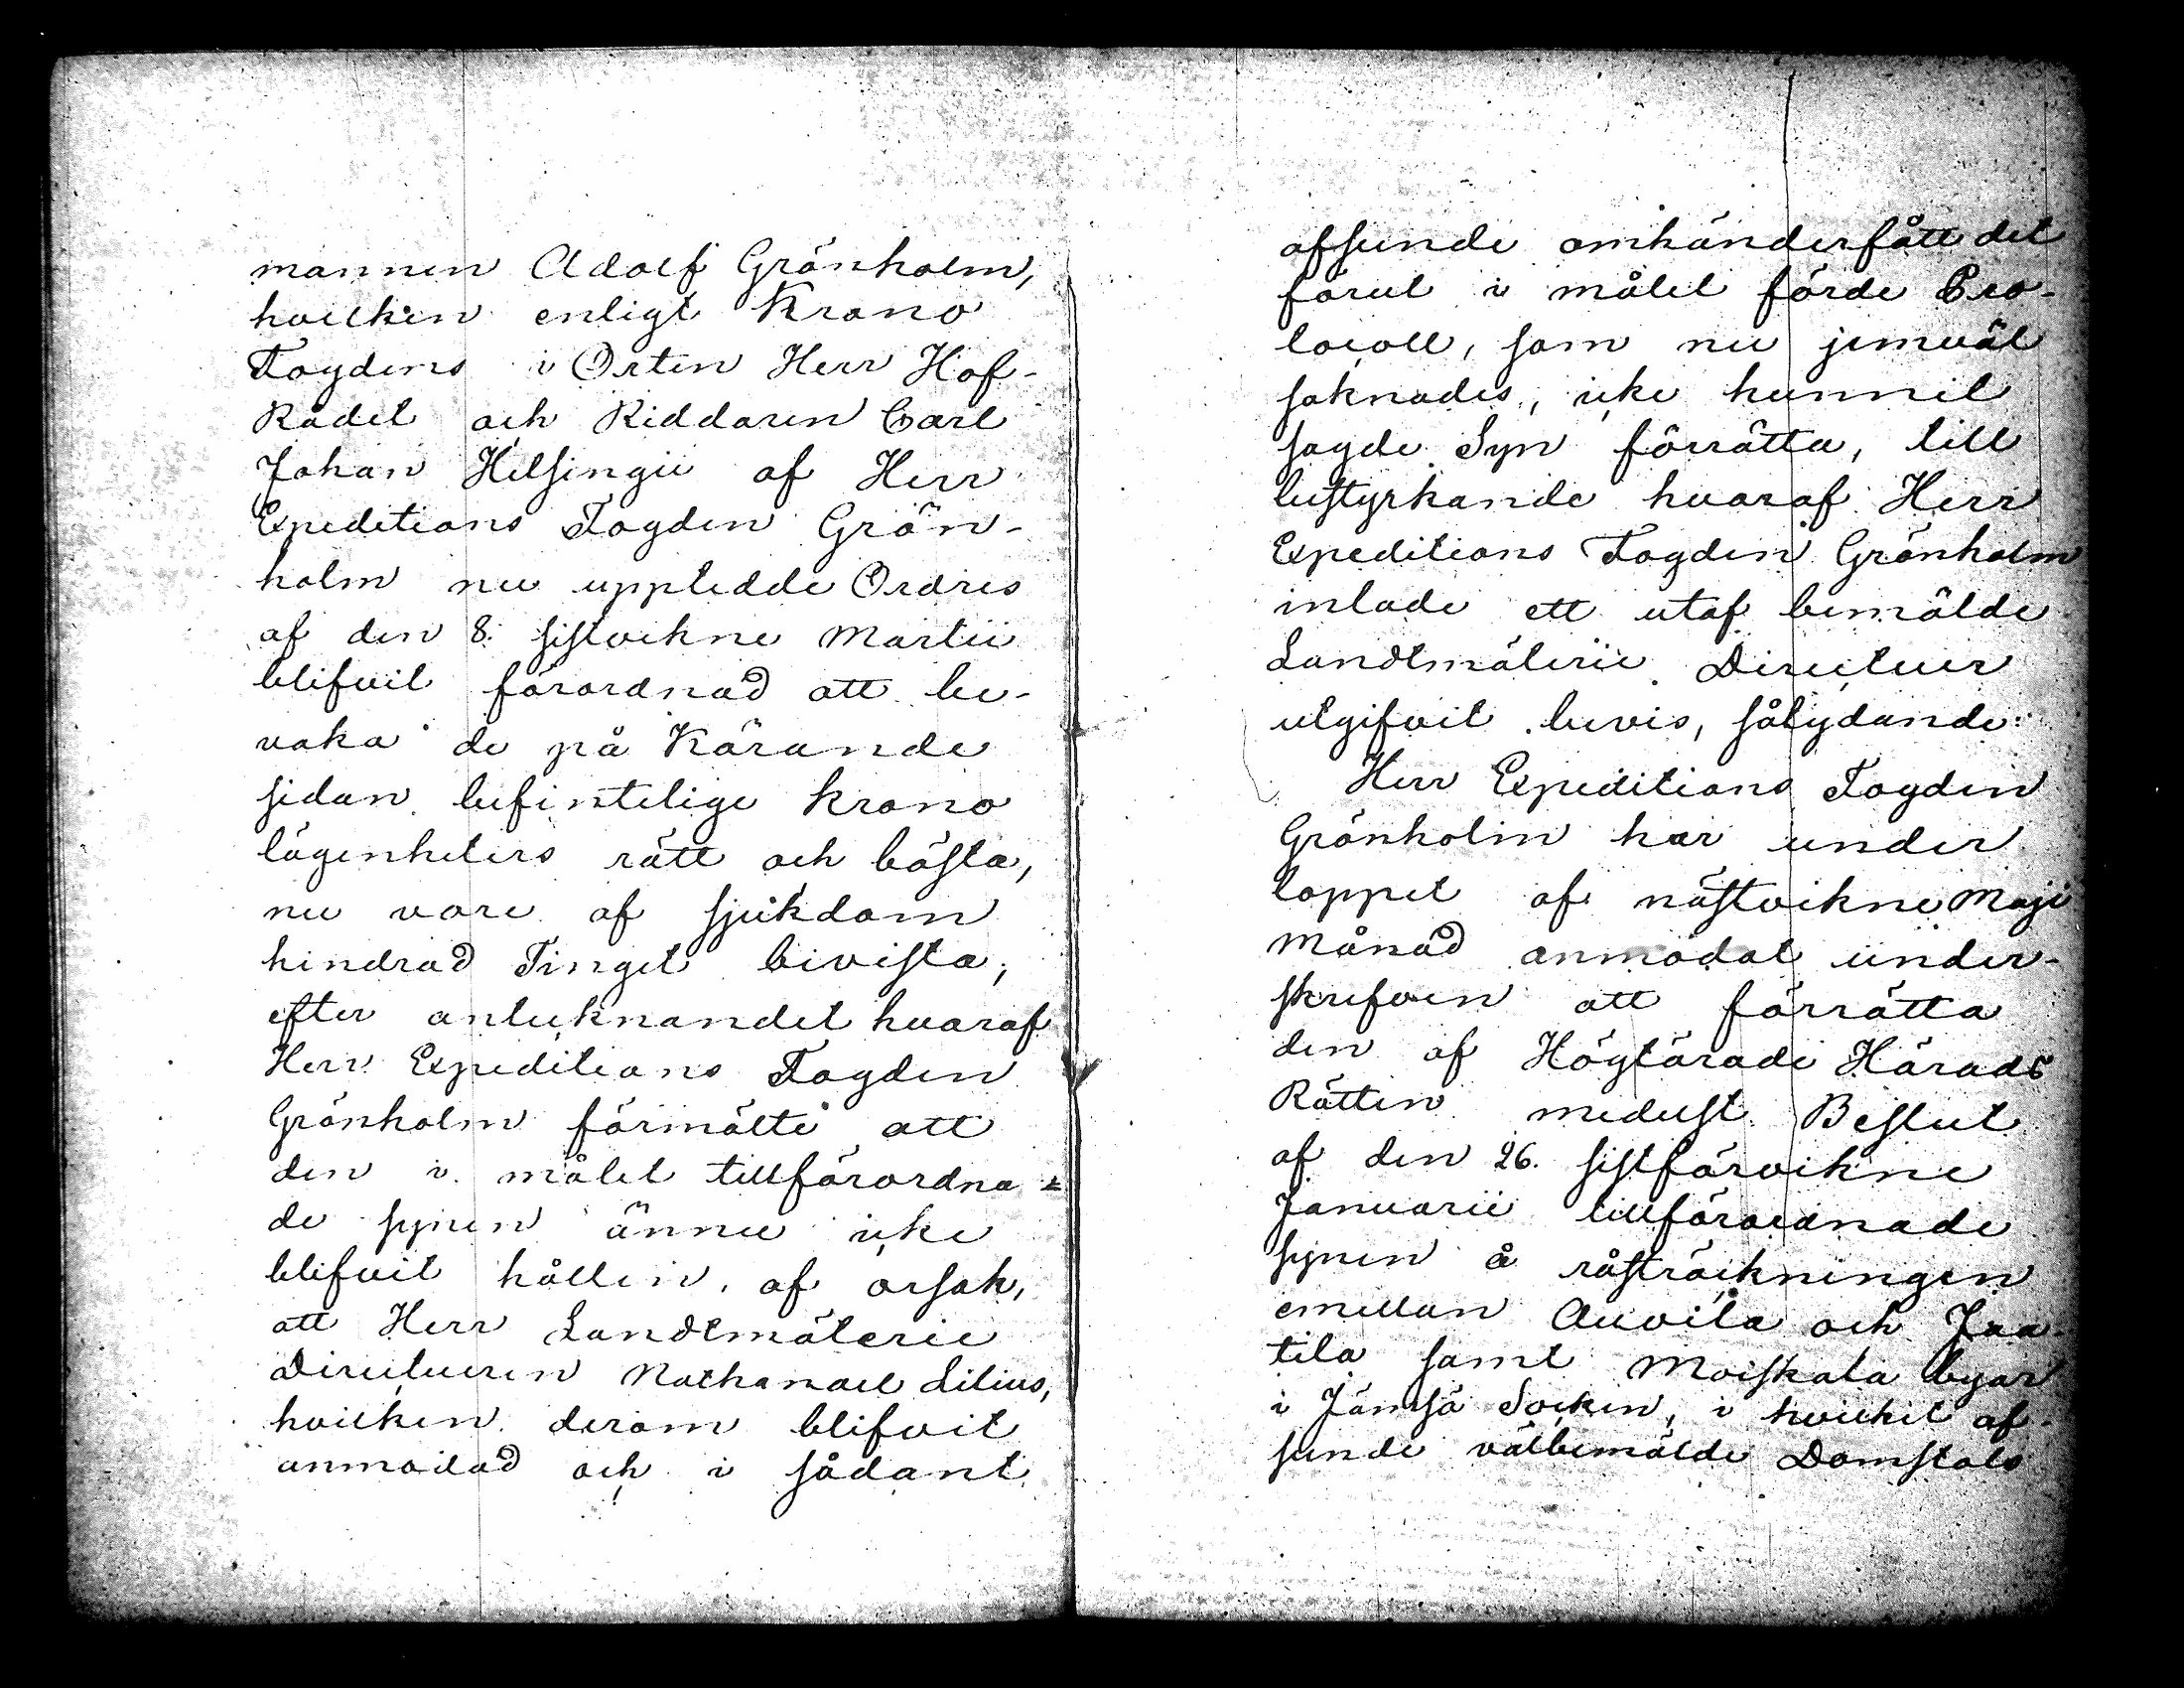 mannen Adolf Grönholm,
hvilken enligt Krono
Fogdens i Orten Herr Hof-
Rådet och Riddaren Carl
Johan Helsingii af Herr
Expeditions Fogden Grön-
holm nu uppledde Ordres
af den 8. sistvikne Martii
blifvit förordnad att be-
vaka de på Kärande
sidan befintelige krono
lägenheters rätt och bästa,
nu vore af sjukdom
hindrad Tinget bivista;
efter anteknandet hvaraf
Herr Expeditions Fogden
Grönholm förmälte att
den i målet tillförordna-
de synen ännu icke
blifvit hållen, af orsak,
att Herr Landtmäterie
Directeuren Nathanael Lilius,
hvilken derom blifvit
anmodad och i sådant
afseende omhänderfått det
förut i målet förde Pro-
tocoll, som nu jemväl
saknades, icke hunnit
sagde Syn förrätta, till
bestyrkande hvaraf Herr
Expeditions Fogden Grönholm
inlade ett utaf bemälde
Landtmäterie Directeur
utgifvit bevis, sålydande:
Herr Expeditions Fogden
Grönholm har under
loppet af nästvikne Maji
Månad anmodat under-
skrefven att förrätta
den af Höglärade Härads
Rätten medelst Beslut
af den 26. sistförvikne
Januarii tillförordnade
synen å råsträckningen
emellan Auvila och Jaa-
tila samt Moiskala byar
i Jämsä Socken, i hvilket af-
seende välbemälde Domstols